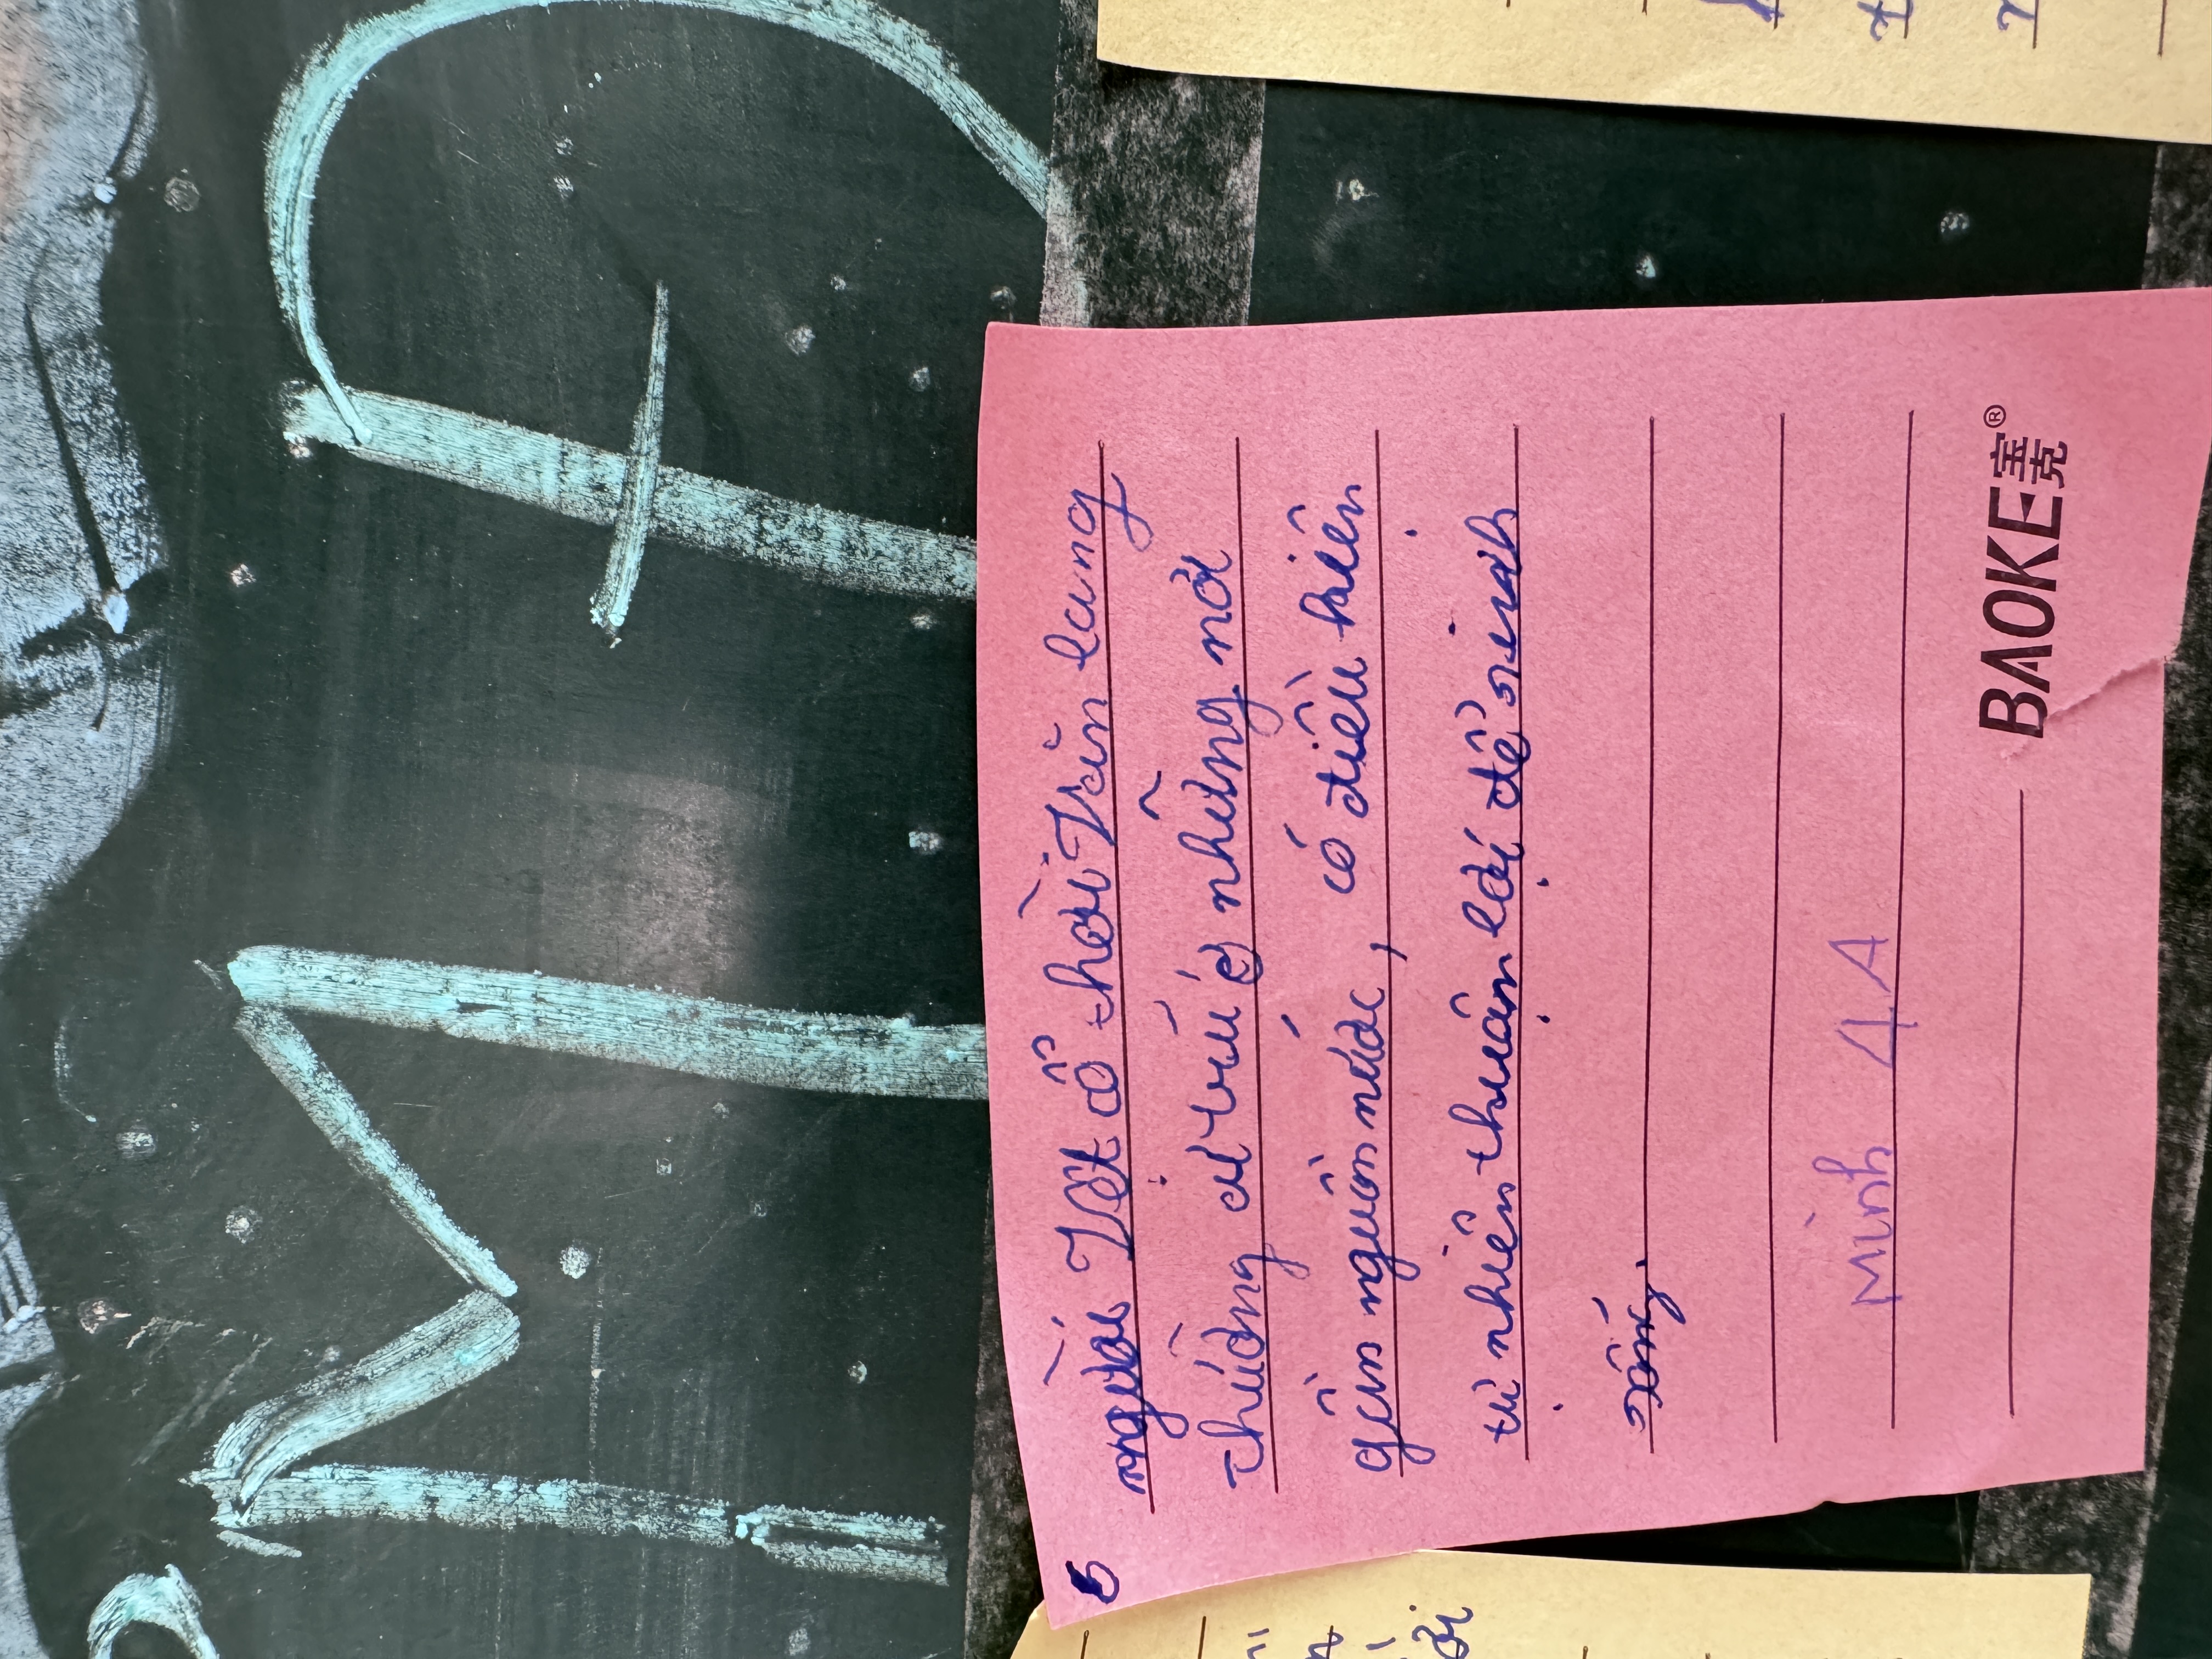 5
người Việt cổ thời Văn Lang
thường cư trú ở những nơi
gần nguồn nước, có điều kiện
tự nhiên thuận lợi để sinh
sống.
Minh 4A
BAOKE宝克®